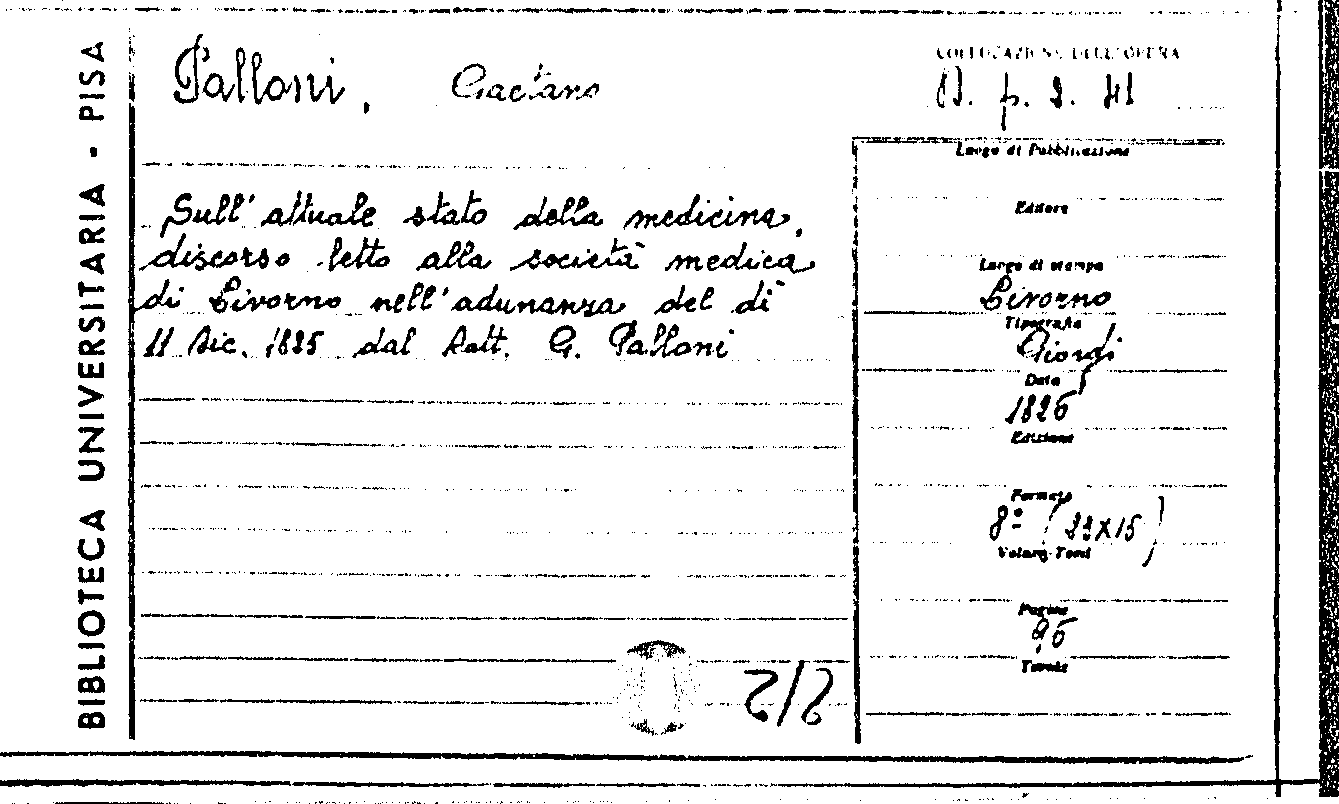 BIBLIOTECA UNIVERSITARIA - PISA
Palloni, Gaetano
COLLOCAZIONE DELL'OPERA
p. 2. 41
Sull'attuale stato della medicina,
discorso letto alla società medica
di Livorno nell'adunanza del dì
11 Dic. 1825 dal Dott. G. Palloni
Luogo di Pubblicazione
Editore
Luogo di stampa
Livorno
Tipografia
Giorgi
Data
1826
Edizione
Formato
8º (23x15)
Volumi-Tomi
Pagine
96
Tavole
2/2